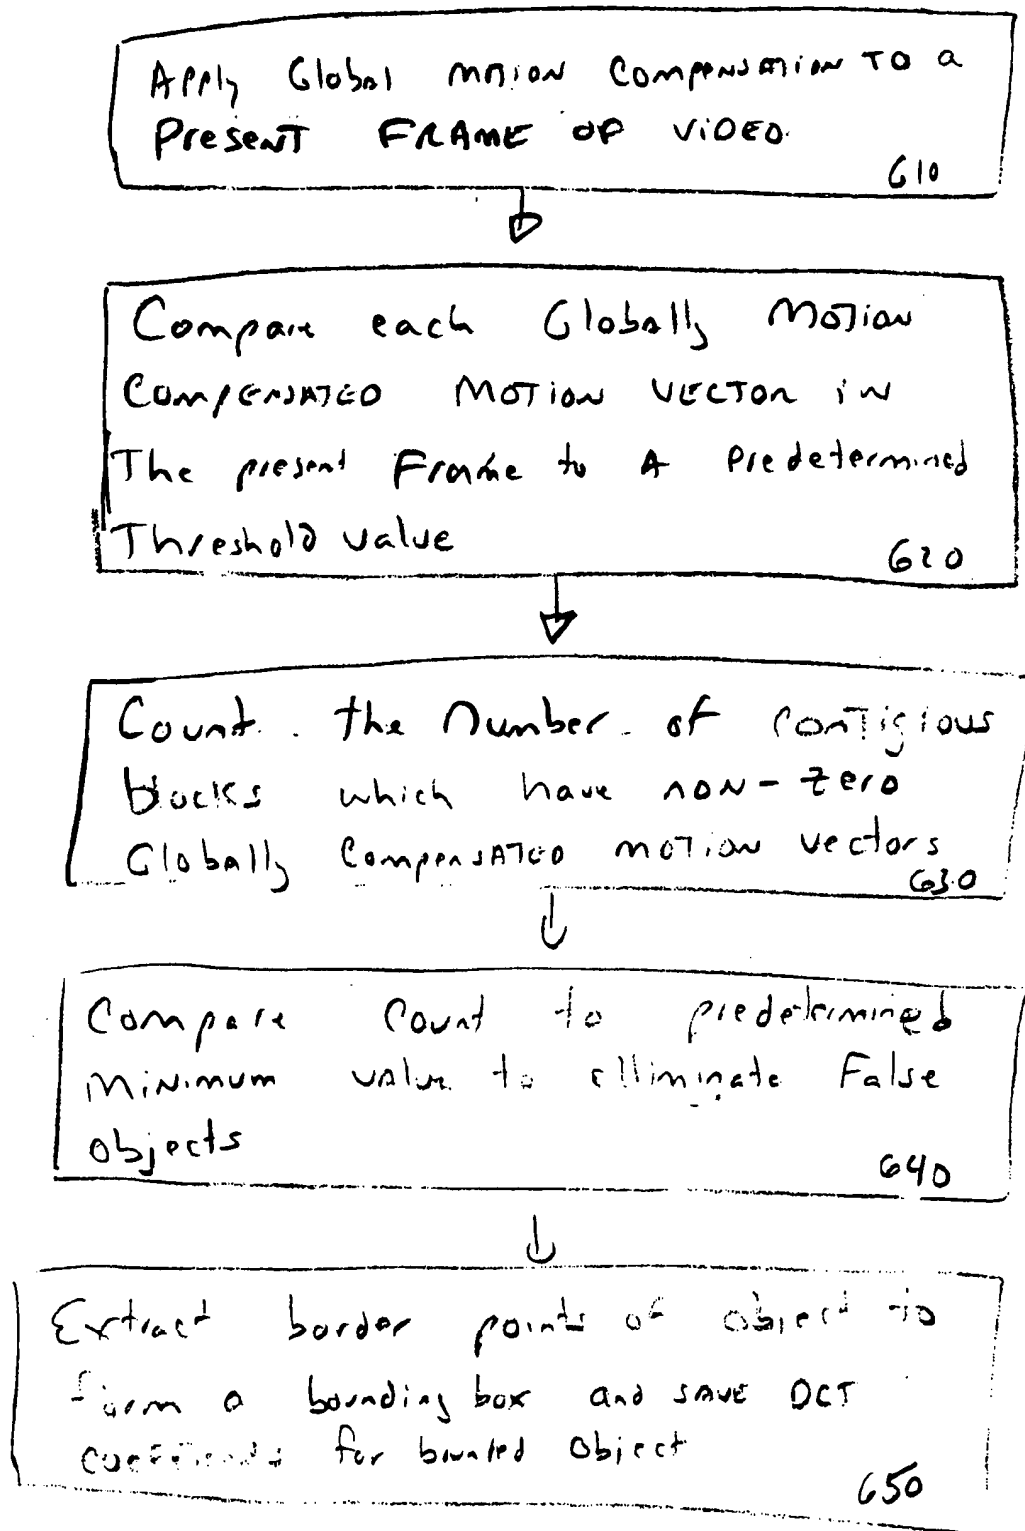 Apply Global motion compensation to a
Present FRAME OF VIDEO.
610
Compare each Globally Motion
COMPENSATED MOTION VECTOR in
The present Frame to A Predetermined
Threshold value
620
Count the Number of contigious
blocks which have non-zero
Globally COMPENSATED motion vectors
630
Compare Count to predetermined
minimum value to elliminate False
objects
640
Extract border points of object to
form a bounding box and SAVE DCT
coefficients for bounded Object
650